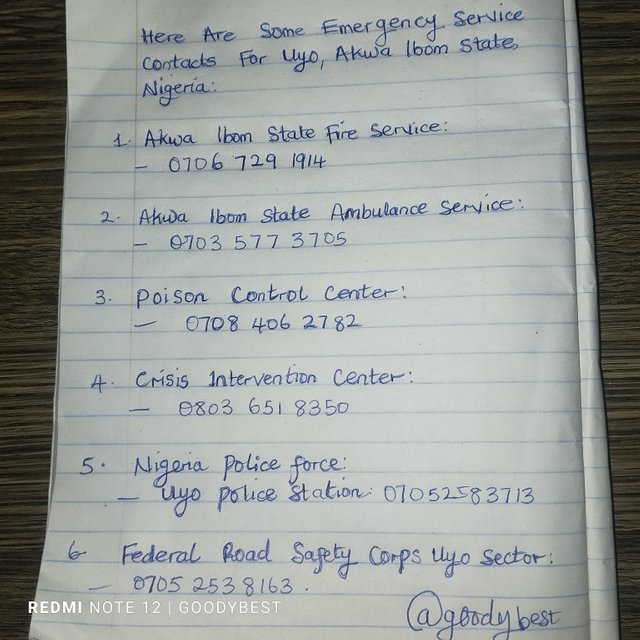 Here Are Some Emergency Service
Contacts For Uyo, Akwa Ibom State,
Nigeria:
1. Akwa Ibom State Fire Service:
- 0706 729 1914
2. Akwa Ibom State Ambulance Service:
- 0703 577 3705
3. Poison Control Center:
- 0708 406 2782
4. Crisis Intervention Center:
- 0803 651 8350
5. Nigeria Police force:
- Uyo police Station: 07052583713
6- Federal Road Safety Corps Uyo Sector:
- 0705 253 8163.
REDMI NOTE 12 | GOODYBEST
@goodybest